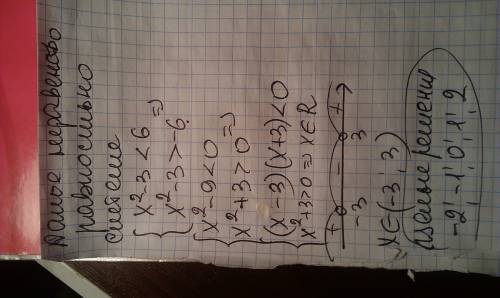 Данное неравенство
равносильно
системе
{ x²-3<6
{ x²-3>-6. ⇒
{ x²-9<0
{ x²+3>0 ⇒
{ (x-3)(x+3)<0
{ x²+3>0 ⇒ x∈R
+ - +
-3 3
x∈(-3; 3)
целые решения
-2; -1; 0; 1; 2